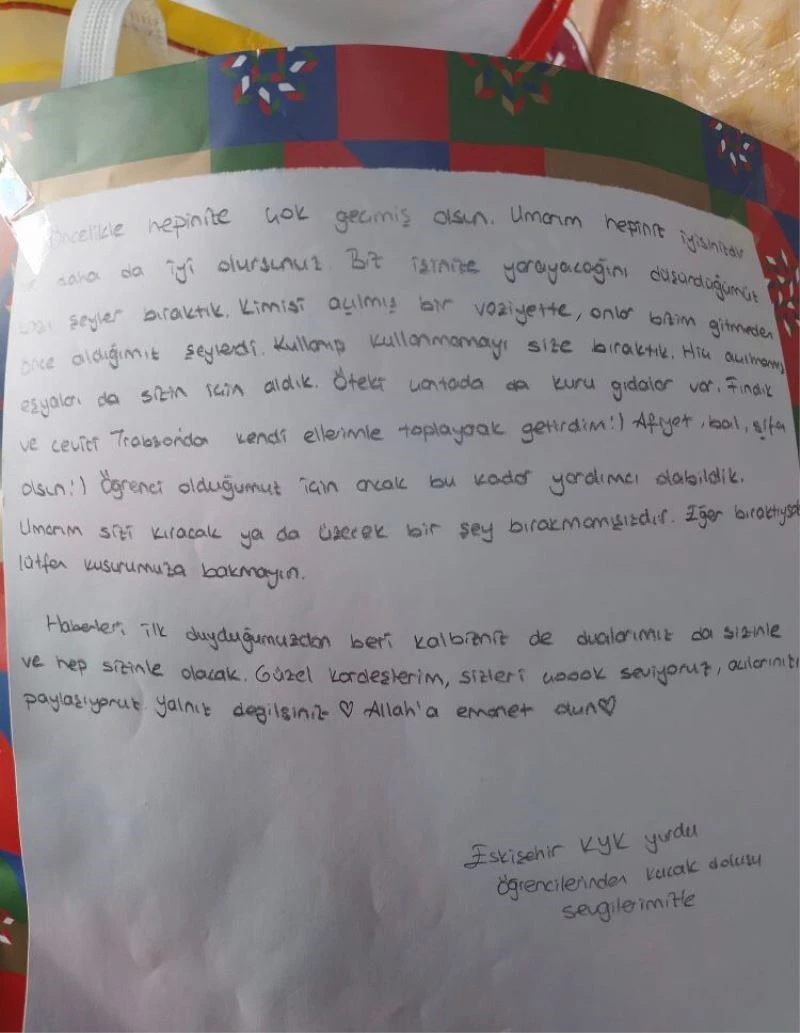 Öncelikle hepinize çok geçmiş olsun. Umarım hepiniz iyisinizdir
ve daha da iyi olursunuz. Biz işinize yarayacağını düşündüğümüz
bazı şeyler bıraktık. Kimisi açılmış bir vaziyette, onlar bizim gitmeden
önce aldığımız şeylerdi. Kullanıp kullanmamayı size bıraktık. Hiç açılmamış
eşyaları da sizin için aldık. Öteki çantada da kuru gıdalar var. Fındık
ve cevizi Trabzondan kendi ellerimle toplayarak getirdim:) Afiyet, bal, şifa
olsun:) Öğrenci olduğumuz için ancak bu kadar yardımcı olabildik.
Umarım sizi kıracak ya da üzecek bir şey bırakmamışızdır. Eğer bıraktıysak
lütfen kusurumuza bakmayın.
Haberleri ilk duyduğumuzdan beri kalbimiz de dualarımız da sizinle
ve hep sizinle olacak. Güzel kardeşlerim, sizleri çoook seviyoruz, acılarınızı
paylaşıyoruz. Yalnız değilsiniz ♡ Allah'a emanet olun♡
Eskişehir KYK yurdu
Öğrencilerinden kucak dolusu
sevgilerimizle